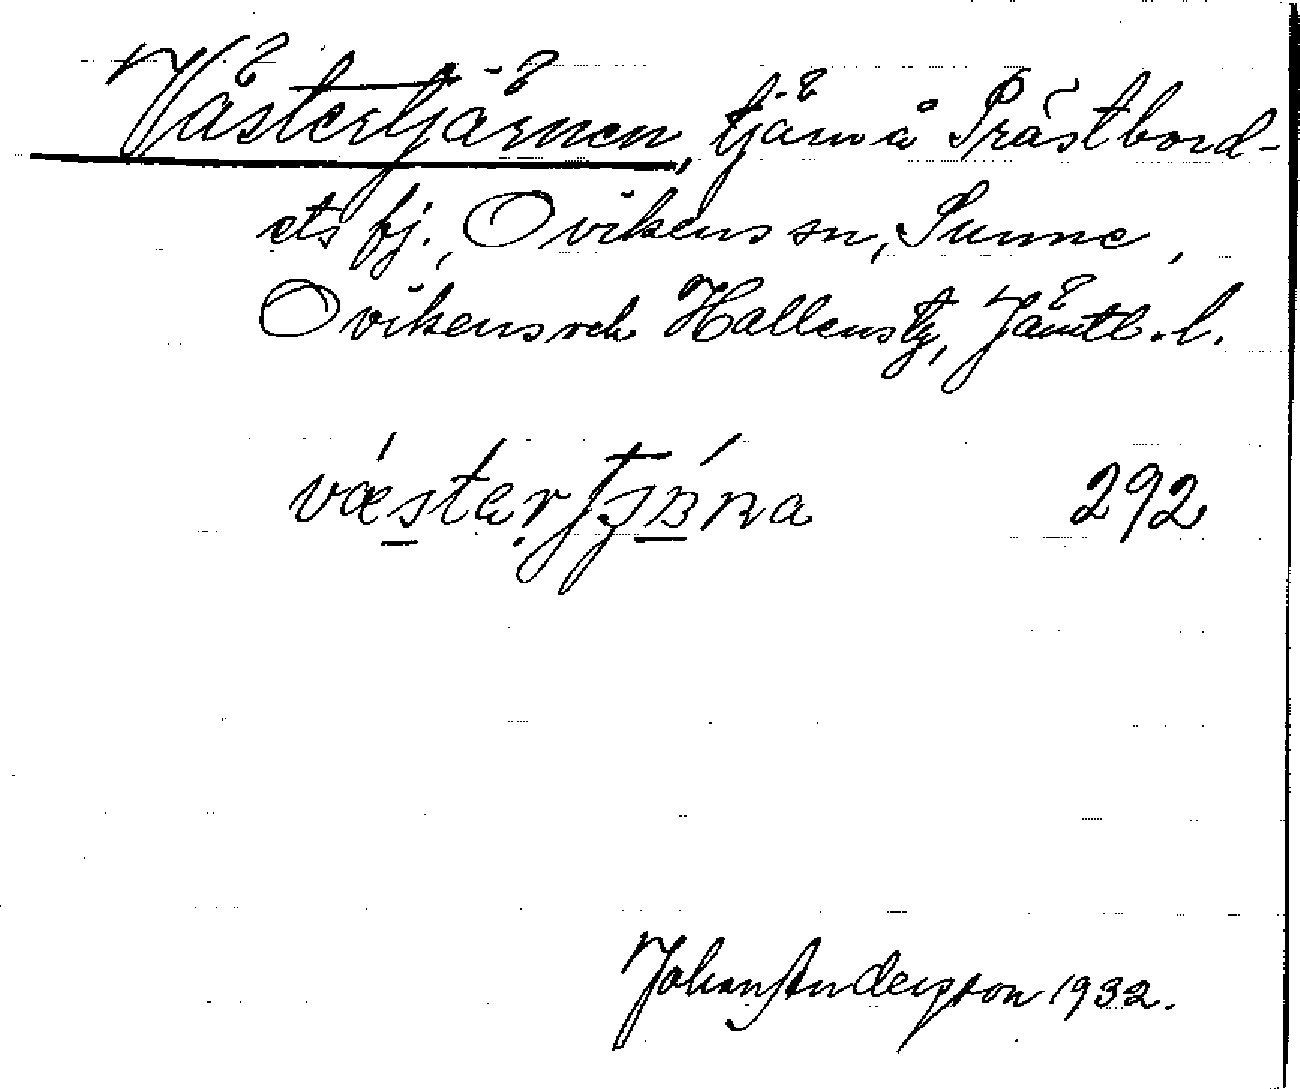 Västertjärnen, tjärn å Prästbord-
ets fj., Ovikens sn, Sunne,
Ovikens och Hallens tg, Jämtl. l.
292
Johan Anderson 1932.